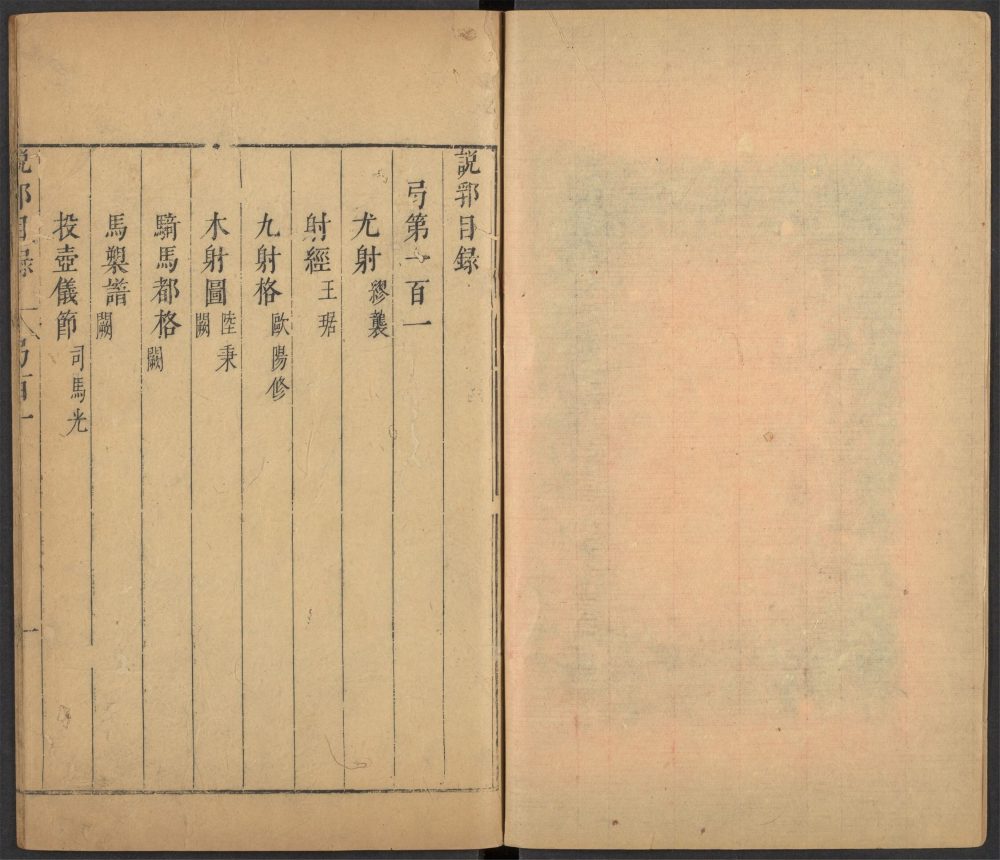 説郛目録
弓第一百一
尤射 繆襲
射經 王琚
九射格 歐陽修
木射圖 陸秉 闕
騎馬都格 闕
馬槊譜 闕
投壺儀節 司馬光
説郛目録 弓百一 一